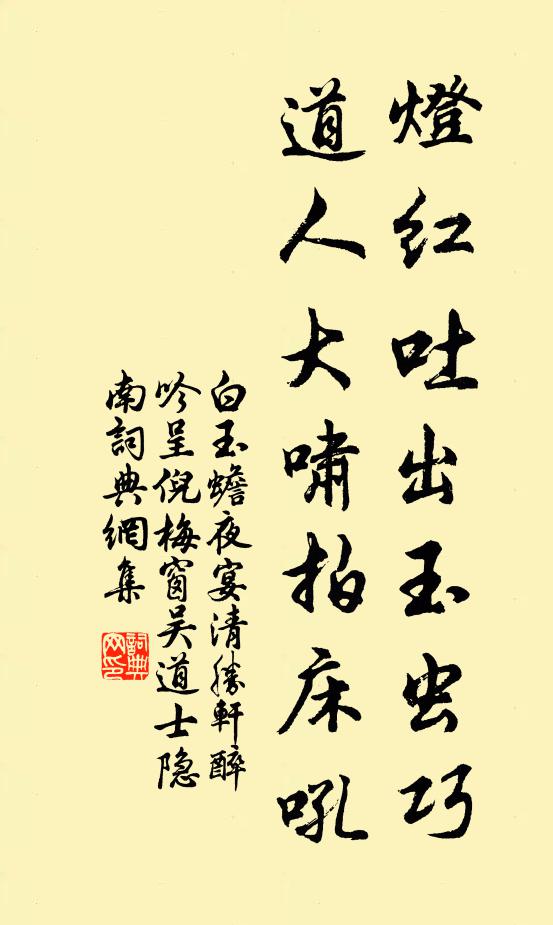 燈紅吐出玉虫巧
道人大嘯拍床吼
白玉蟾夜宴清勝軒醉
吟呈倪梅窗吴道士隐
南詞典網集
詞典